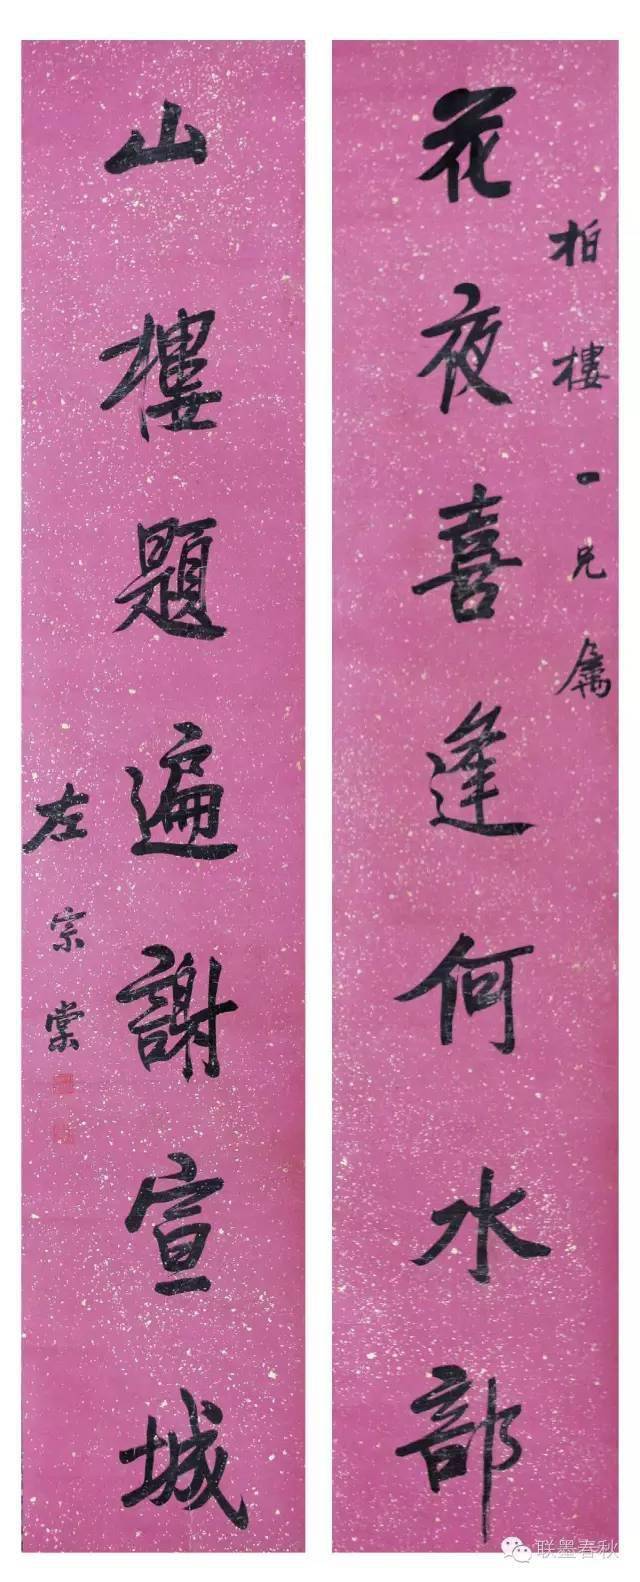 柏樓一兄屬
花夜喜逢何水部
山樓題遍謝宣城
左宗棠
联墨春秋